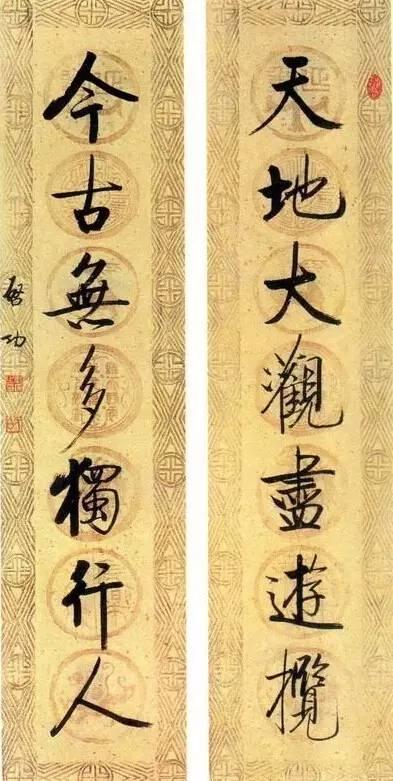 天地大觀盡遊攬
今古無多獨行人
啓功